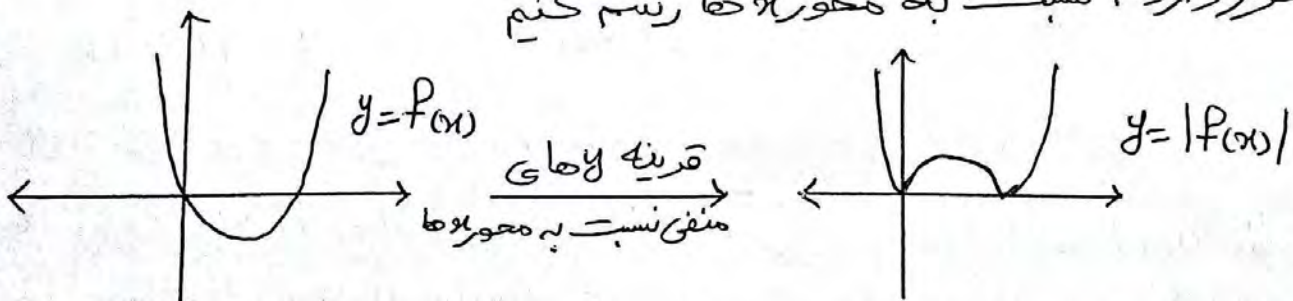 نسبت به محور xها رسم کنیم
y=f(x)
قرینه yهای
منفی نسبت به محور xها
y=|f(x)|